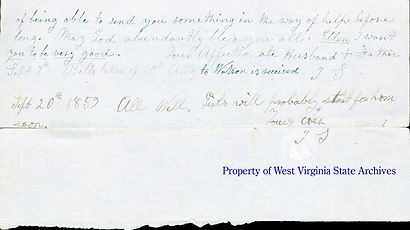 of being able to send you something in the way of help before
long. May God abundantly bless you all. Ellen I want
you to be very good. Your Affectionate Husband & Father
Sept 9th Bell's letter of 30th Aug to Watson is received I S
Sept 20th 1859 All Well. Girls will probably start for home
soon. Yours Ever
I S
Property of West Virginia State Archives